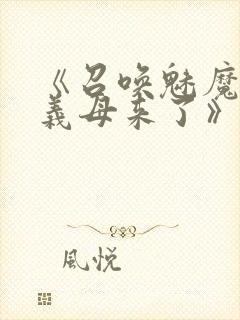 《召唤魅魔
義母来了》
風悦